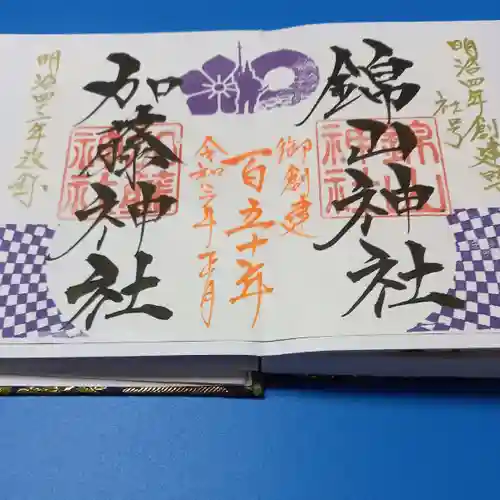 明治四年創建時
社号
錦山神社
錦山
神社
御創建
百五十年
令和三年 正月
加藤神社
加藤
神社
明治四二年改称